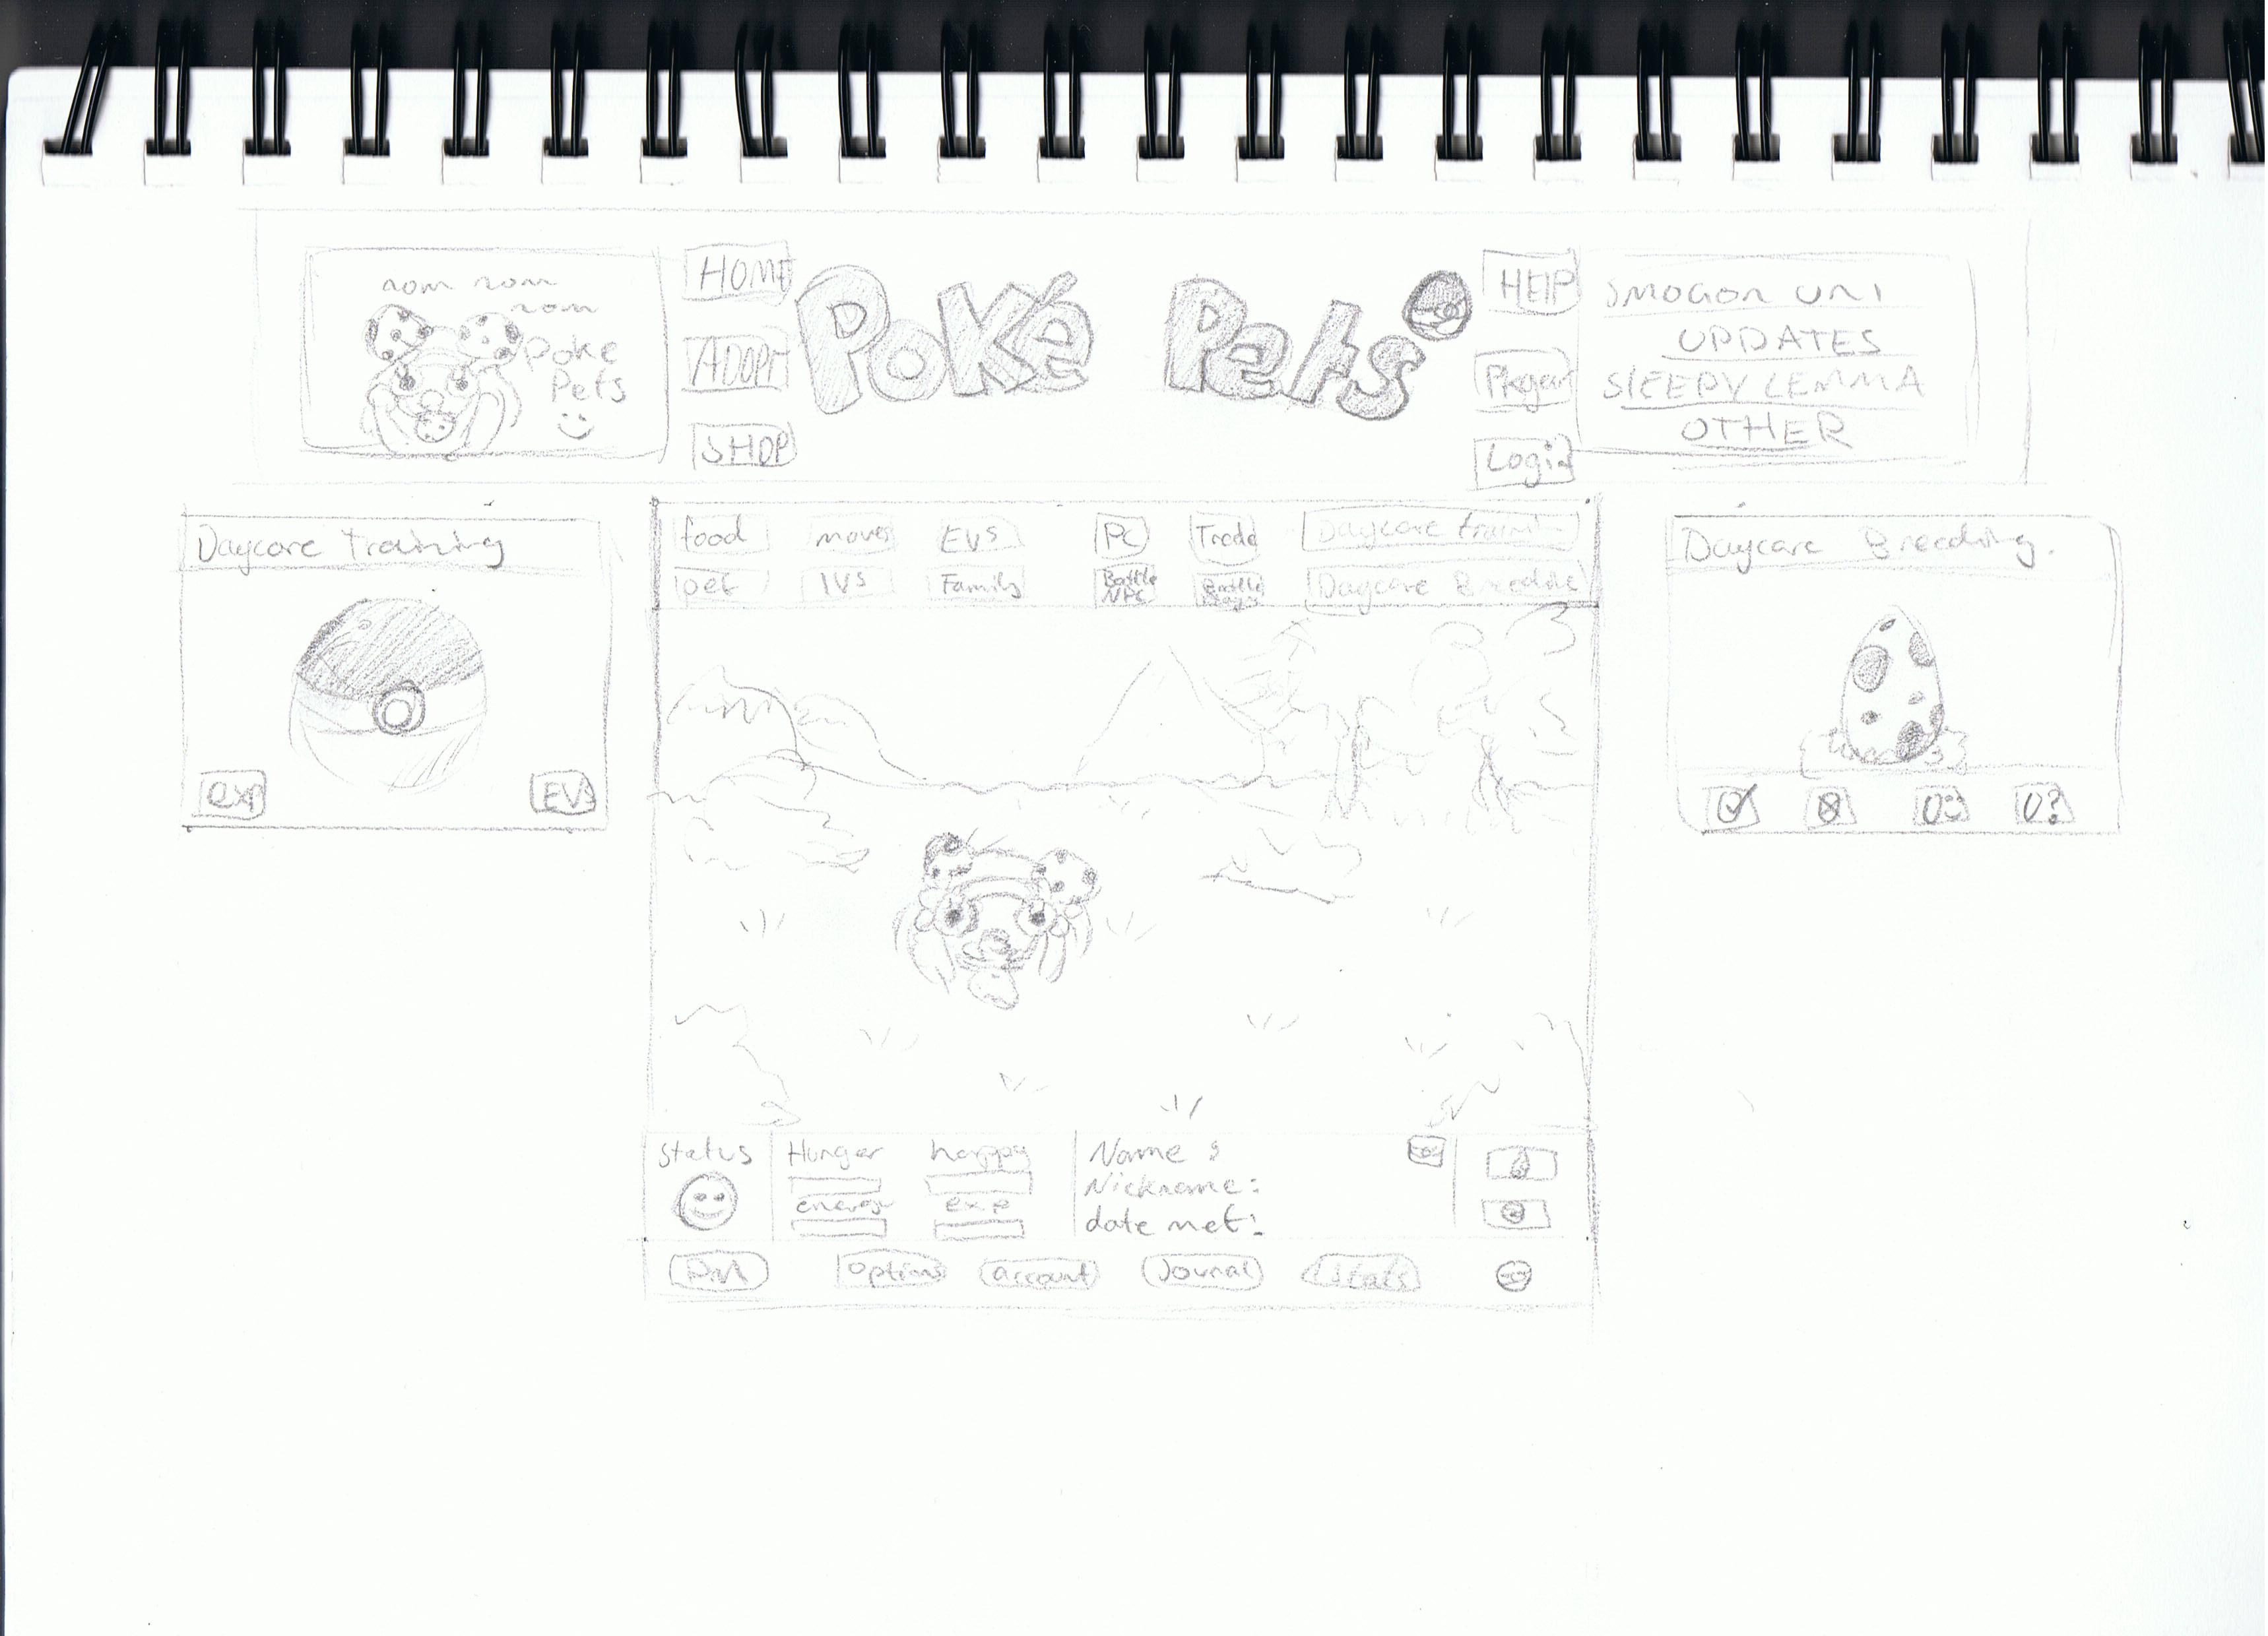 nom nom
nom
Poke
Pets
HOME
ADOPT
SHOP
Poké Pets
HELP
Pkgear
Login
SMOGON UNI
UPDATES
SLEEPY LEMMA
OTHER
Daycare Training
exp
EVs
food moves EVs PC Trade Daycare
pet IVs Family Battle NPC Battle Daycare
Daycare Breeding.
Status
Hunger happy
energy exp
Name :
Nickname:
date met:
PM options account Journal Stats